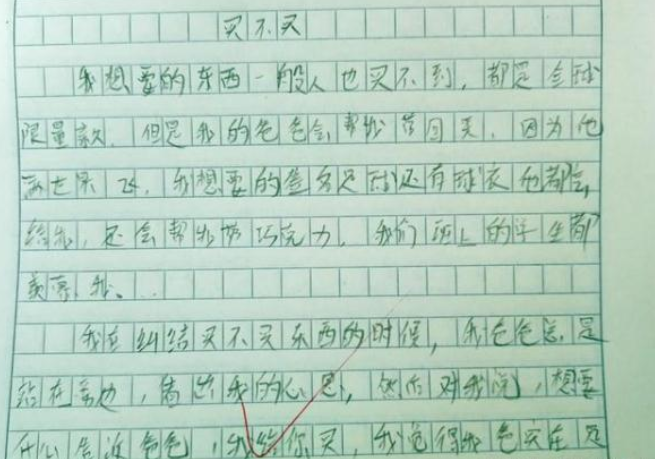 买不买
我想要的东西一般人也买不到，都是全球
限量款，但是我的爸爸会帮我 国买，因为他
满世界飞，我想要的签名足球还有球衣他都会
给我，还会帮我带巧克力，我们班上的学生都
羡慕我、..
我在纠结买不买东西的时候，我爸爸总是
站在旁边，看出我的心思，然后对我说，想要
开心告诉爸爸，我给你买，我觉得我爸实在是